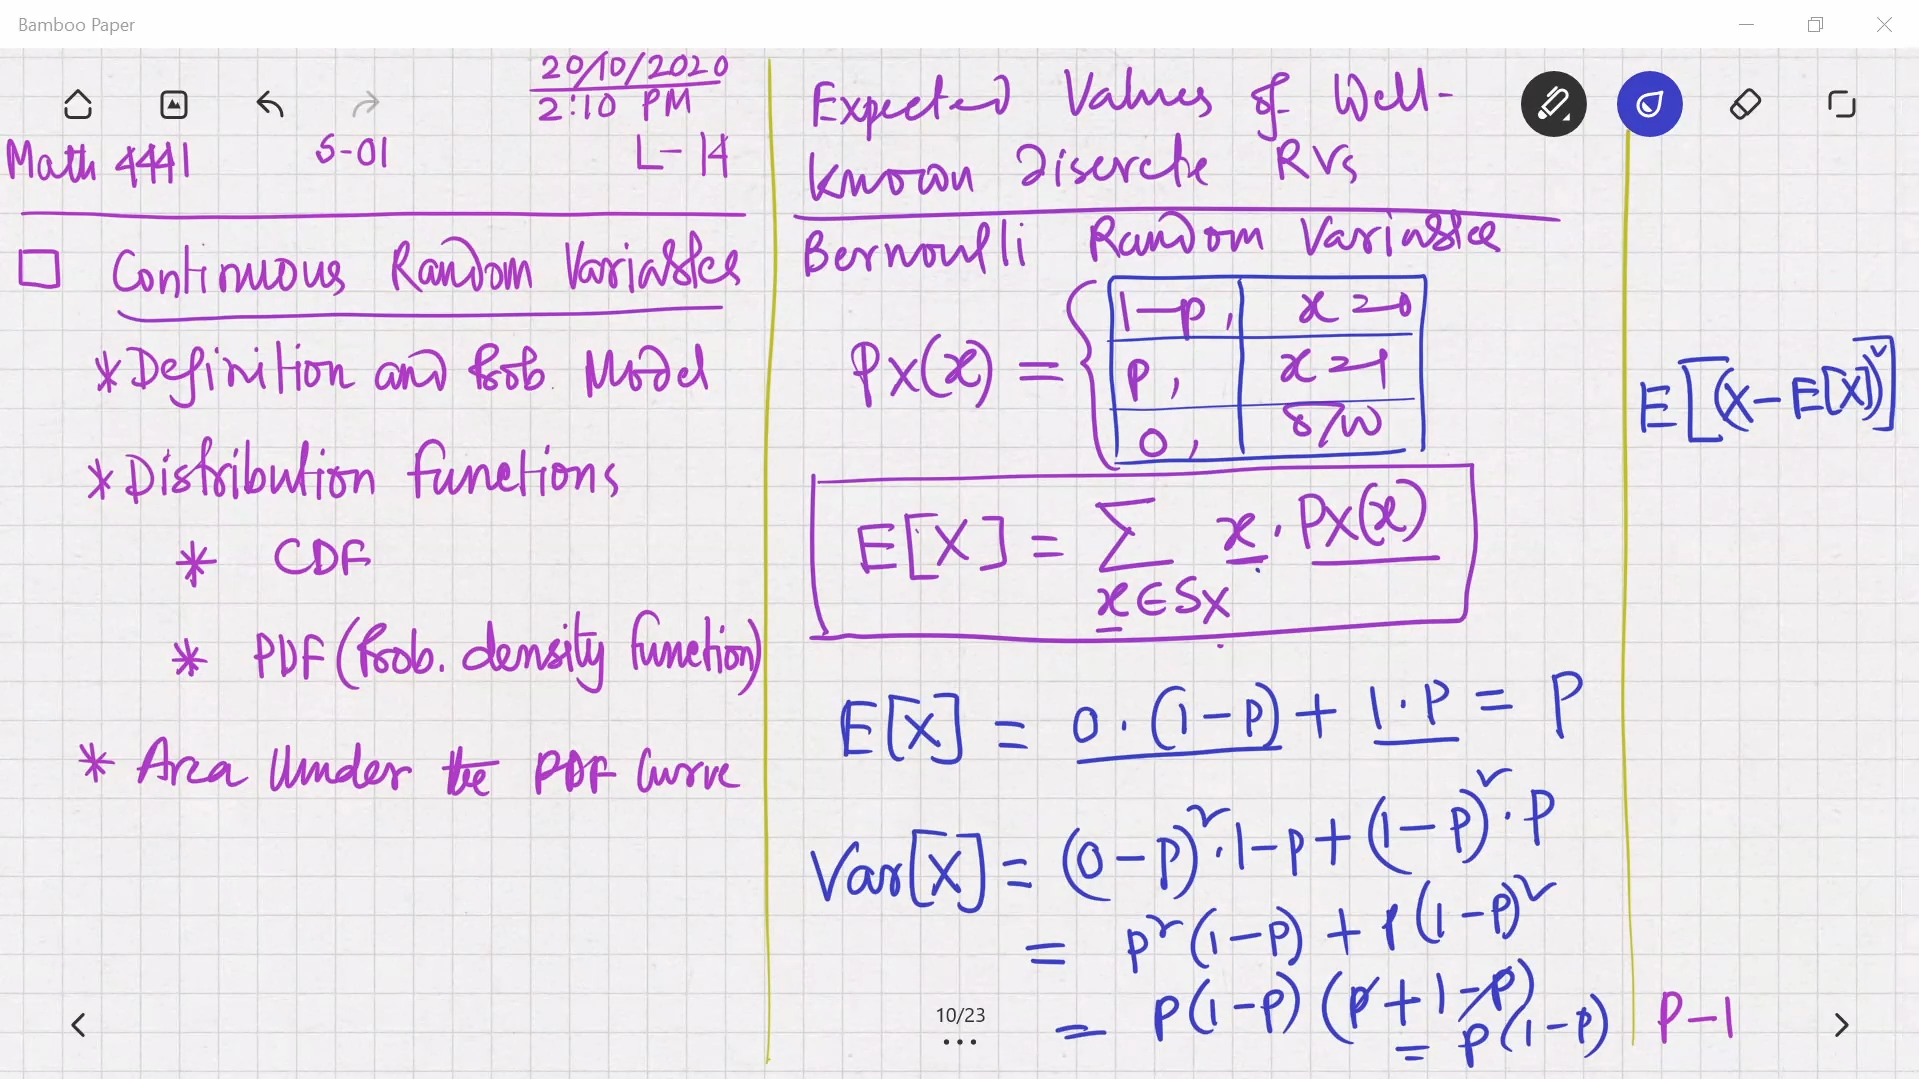 Bamboo Paper
20/10/2020
2:10 PM
Math 4441 S-01 L-14
Continuous Random Variables
* Definition and Prob. Model
* Distribution functions
* CDF
* PDF (Prob. density function)
* Area Under the PDF Curve
Expected Values of Well-
known Discrete RVs
Bernoulli Random Variables
PX(x) = { 1-p, x=0
p, x=1
0, o/w
E[X] = ∑ x · PX(x)
x∈SX
E[X] = 0·(1-p) + 1·p = p
Var[X] = (0-p)²·1-p + (1-p)²·p
= p²(1-p) + p(1-p)²
= p(1-p) (p+1-p)
= p(1-p)
10/23
E[(X-E[X])²]
P-1